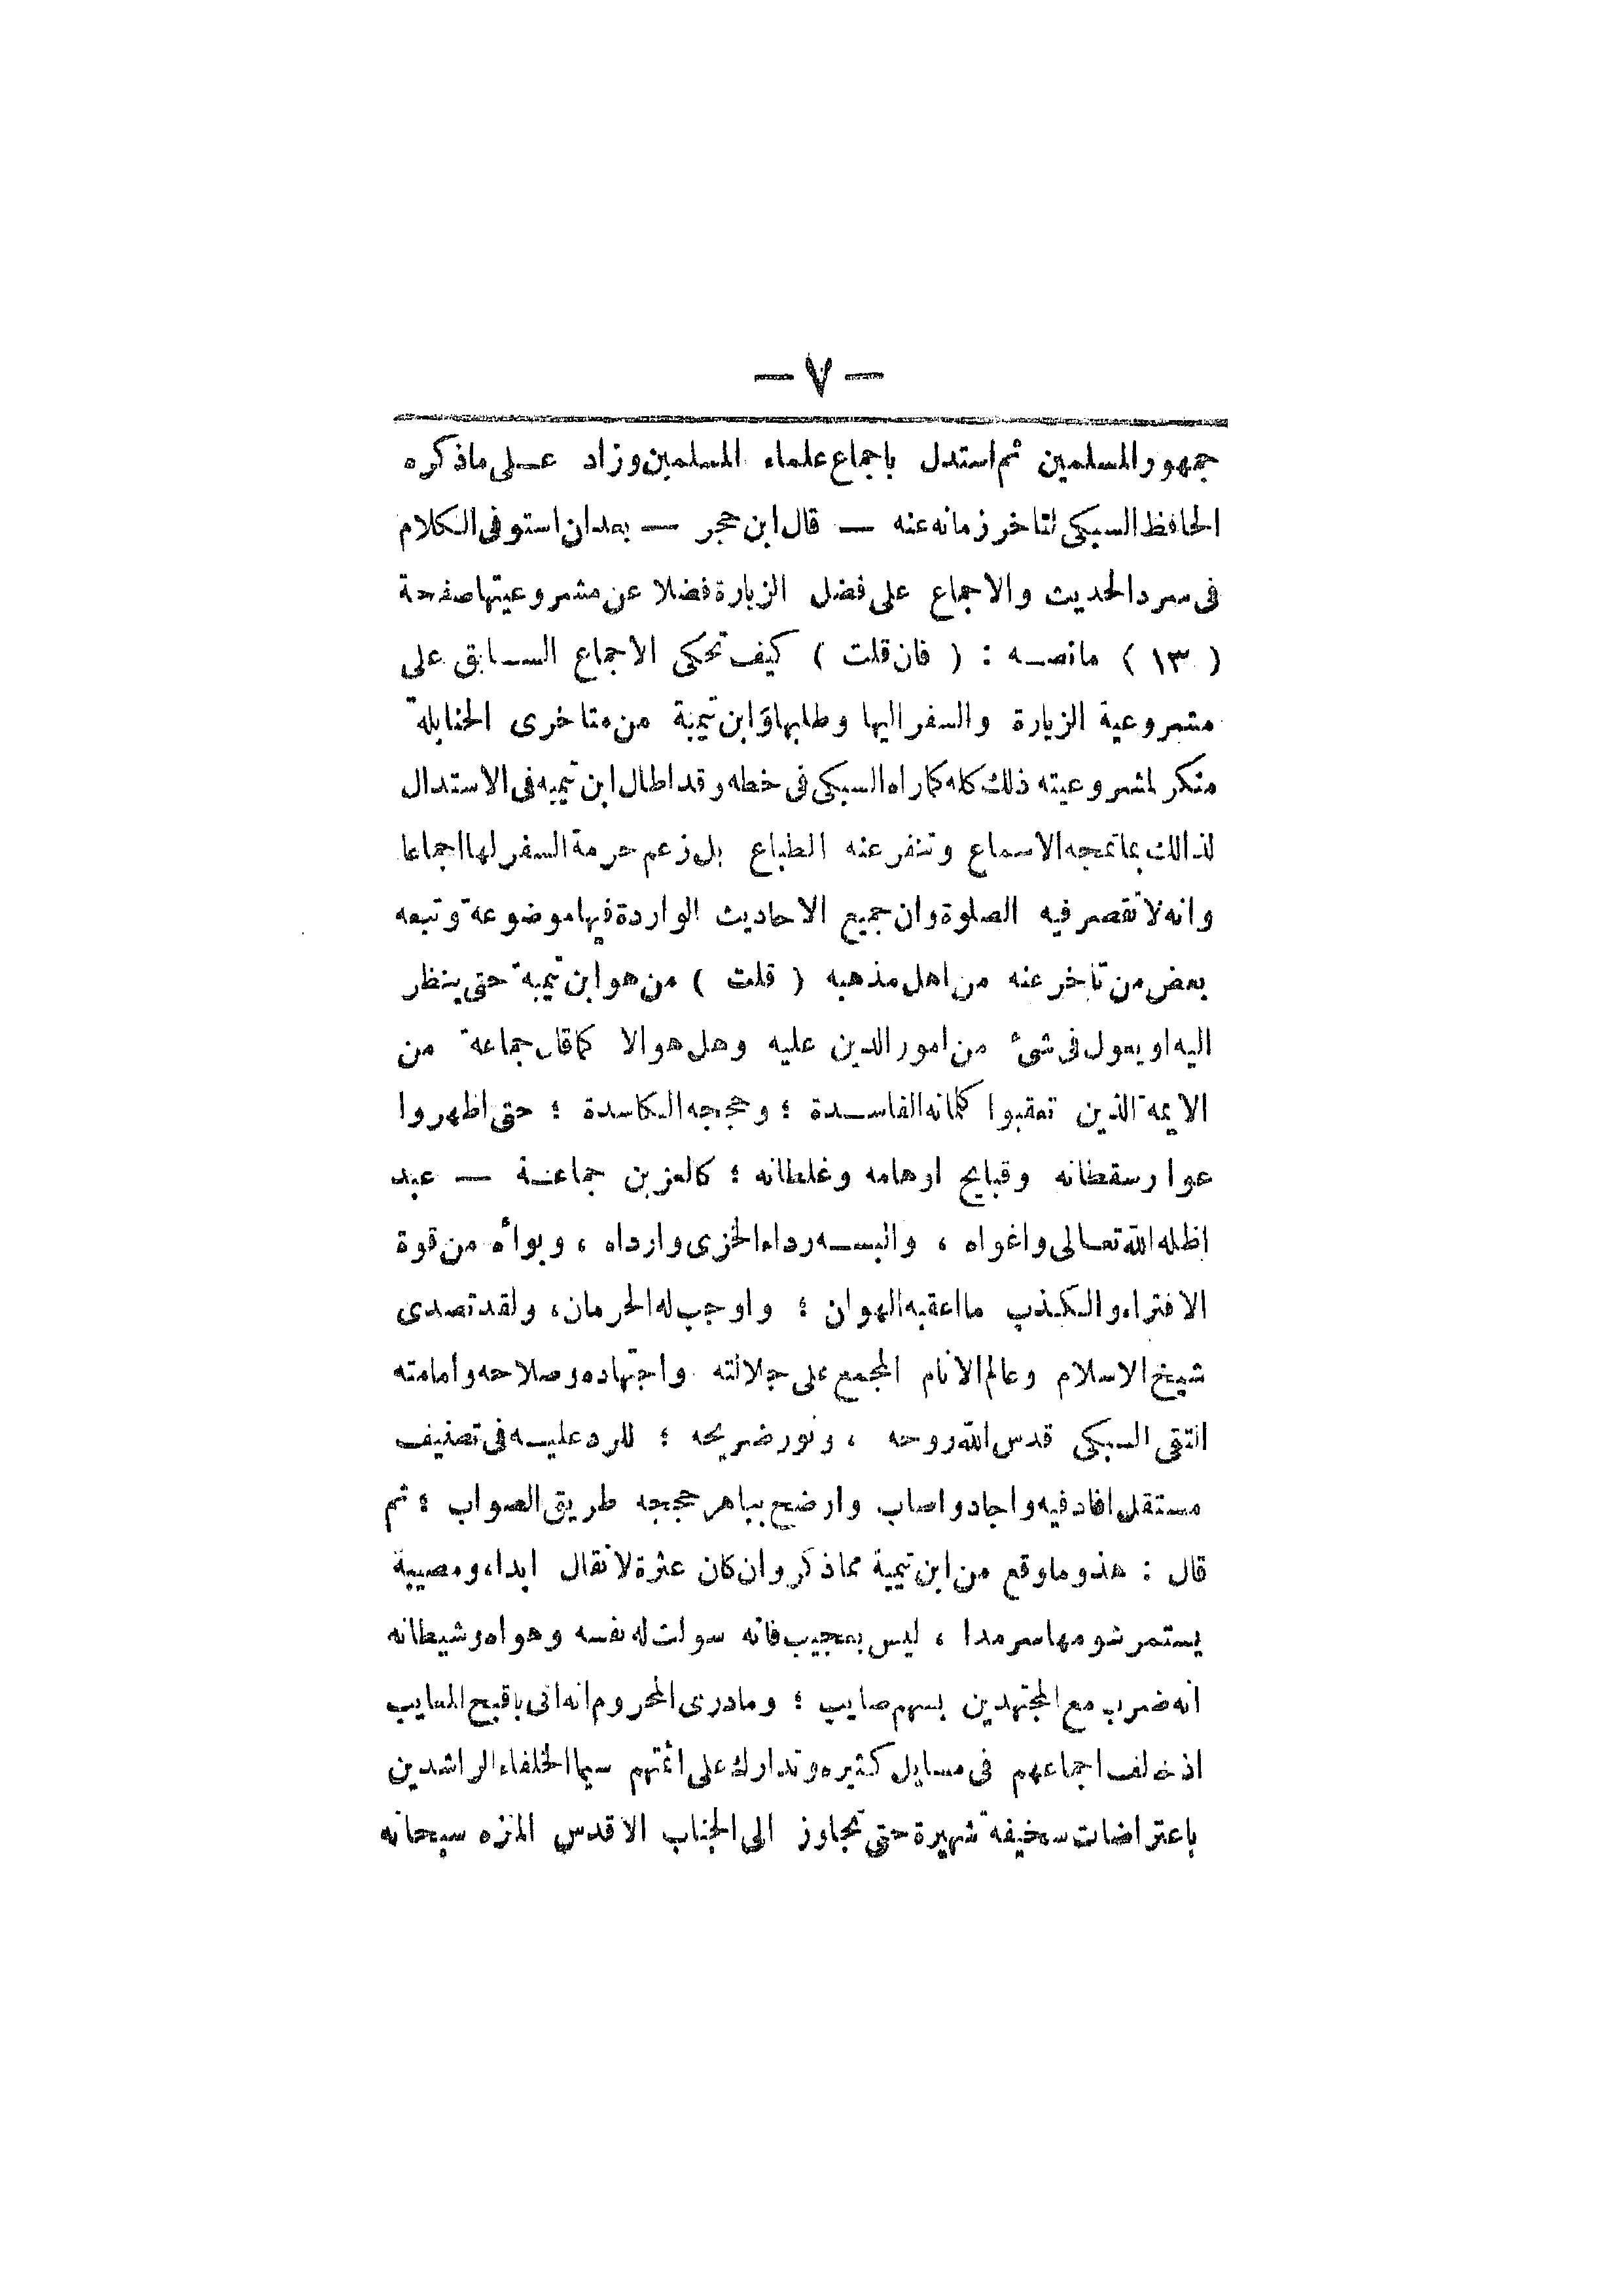 — ٧ —
جمهور المسلمين ثم استدل باجماع علماء المسلمين وزاد على ماذكره
الحافظ السبكى لتاخر زمانه عنه — قال ابن حجر — بعدان استوفى الكلام
فى سرد الحديث والاجماع على فضل الزيارة فضلا عن مشروعيتها صفحة
( ١٣ ) مانصه : ( فان قلت ) كيف تحكى الاجماع السابق على
مشروعية الزيارة والسفر اليها وطلبها وابن تيمية من متاخرى الحنابلة
منكر لمشروعيته ذلك كله كماراه السبكى فى خطه وقد اطال ابن تيميه فى الاستدال
لذالك بماتمجه الاسماع وتنفر عنه الطباع بل زعم حرمة السفر لها اجماعا
وانه لا تقصر فيه الصلوة وان جميع الاحاديث الواردة فيها موضوعة وتبعه
بعض من تأخر عنه من اهل مذهبه ( قلت ) من هو ابن تيمية حتى ينظر
اليه او يعول فى شئ من امور الدين عليه وهل هو الا كماقال جماعة من
الايمة الذين تعقبوا كلماته الفاسدة ؛ وحججه الكاسدة ؛ حتى اظهروا
عوار سقطاته وقبايح اوهامه وغلطاته ؛ كالعز بن جماعة — عبد
اظله الله تعالى واغواه ، والبسه رداء الخزى وارداه ، وبوأه من قوة
الافتراء والكذب ما اعقبه الهوان ؛ واوجب له الحرمان ، ولقد تصدى
شيخ الاسلام وعالم الانام المجمع على جلالته واجتهاده وصلاحه وامامته
التقى السبكى قدس الله روحه ، ونور ضريحه ؛ للرد عليه فى تصنيف
مستقل افاد فيه واجاد واصاب واوضح بباهر حججه طريق الصواب ؛ ثم
قال : هذو ماوقع من ابن تيمية مماذكر وان كان عثرة لا تقال ابداء ومصيبة
يستمر شومها سرمدا ، ليس بعجيب فانه سولت له نفسه وهواه وشيطانه
انه ضرب مع المجتهدين بسهم صايب ؛ ومادرى المحروم انه اتى باقبح المعايب
اذ خالف اجماعهم فى مسايل كثيره وتدارك على ائمتهم سيما الخلفاء الراشدين
باعتراضات سخيفة شهيرة حتى تجاوز الى الجناب الاقدس المنزه سبحانه